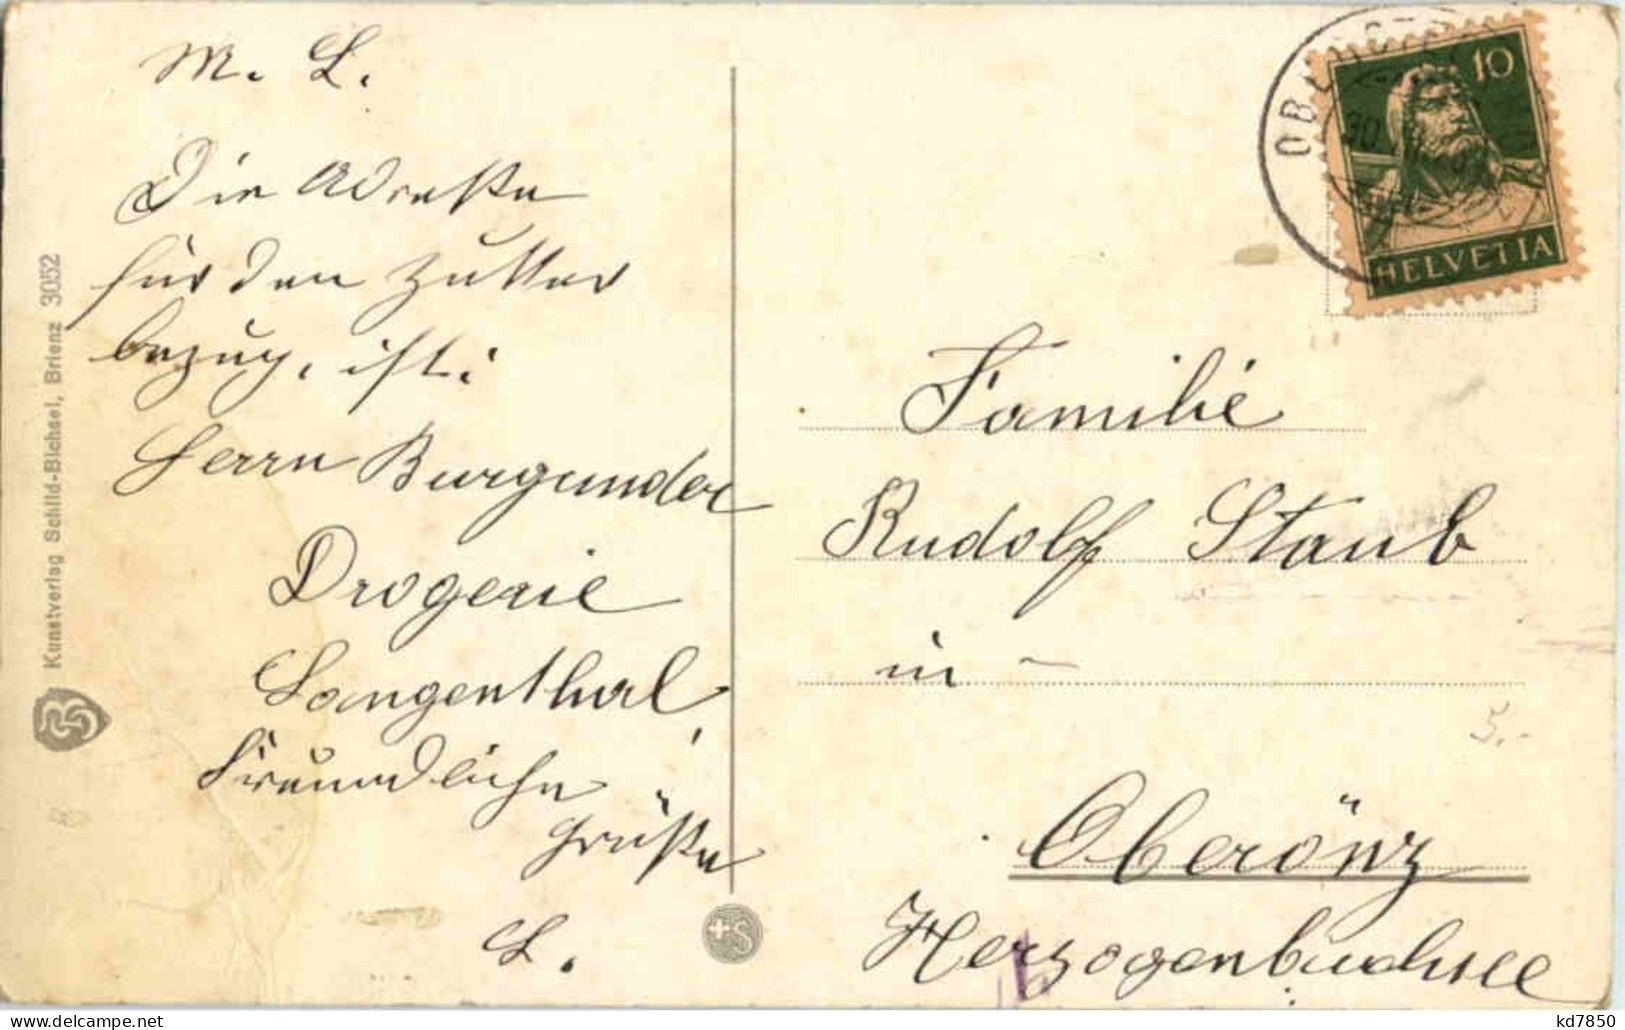 M. L.
Die Adresse
für den Futter
bezug, ist:
Herrn Burgunder
Drogerie
Langenthal,
Freundliche
Grüße
L.
Kunstverlag Schild-Bichsel, Brienz 3052
10
HELVETIA
30.
Familie
Rudolf Staub
in
Oberönz
Herzogenbuchsee
5.-
+S
kd7850